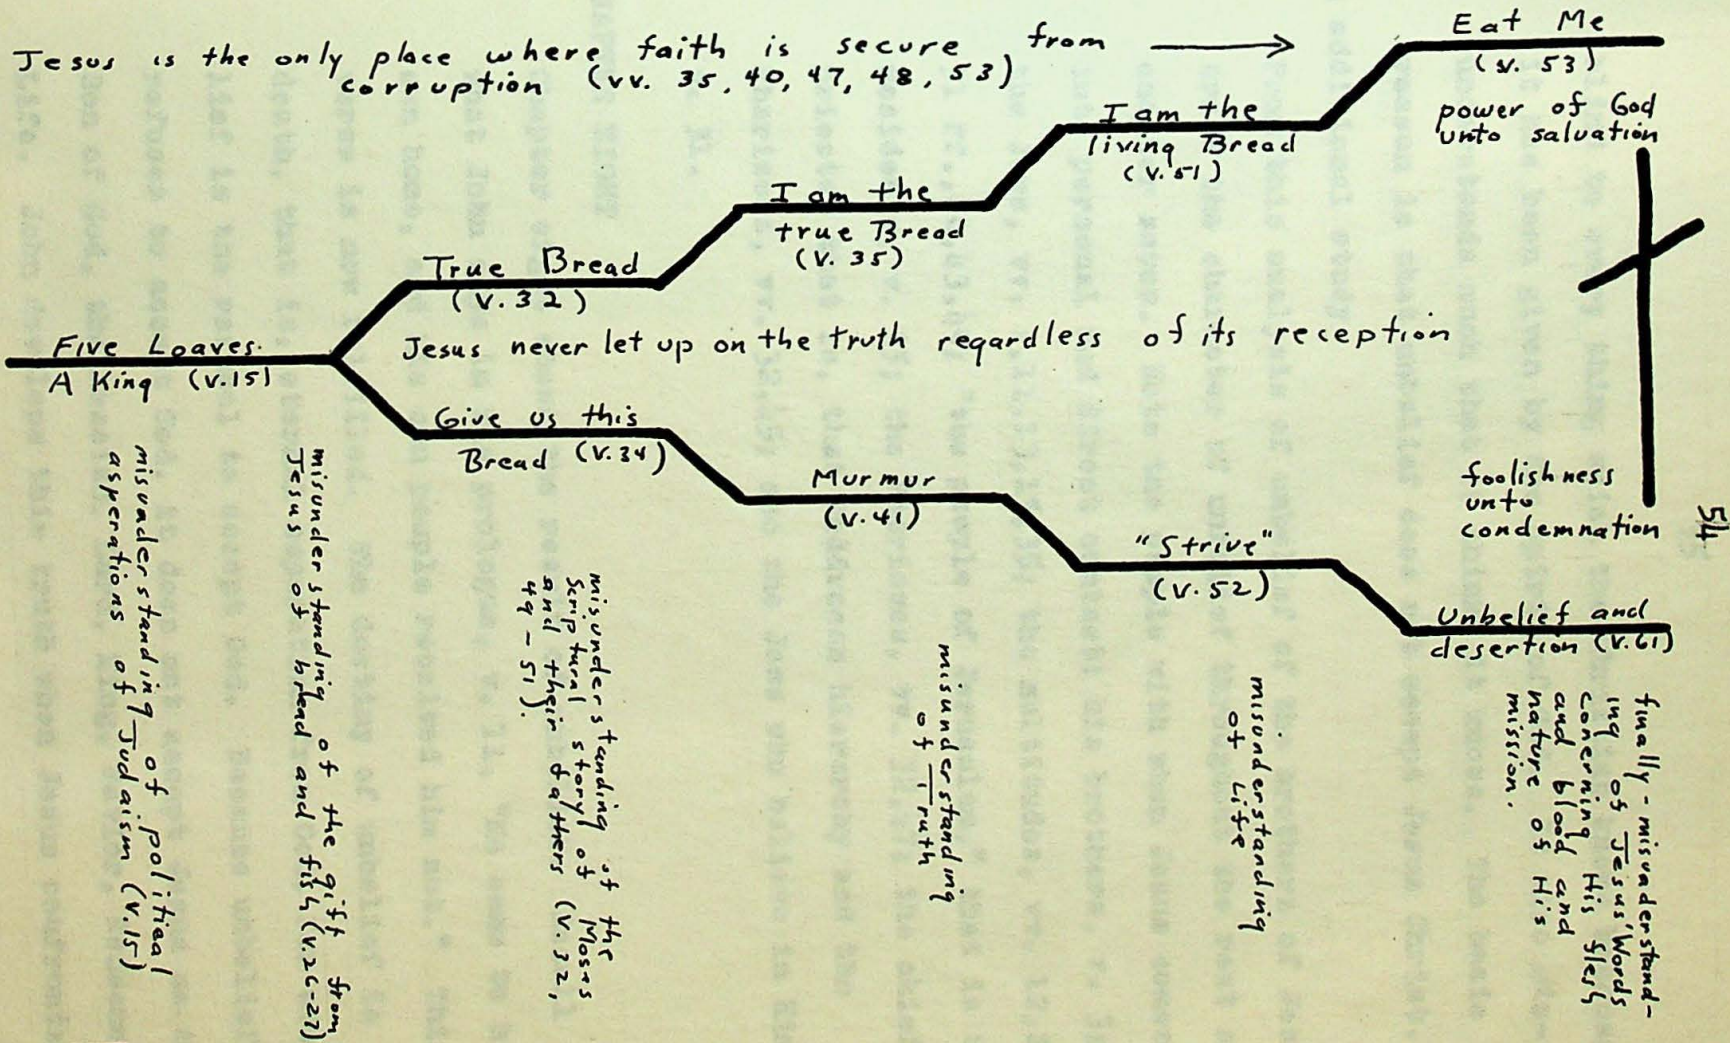 Jesus is the only place where faith is secure from
corruption (vv. 35, 40, 47, 48, 53)
Eat Me
(v. 53)
power of God
unto salvation
I am the
living Bread
(v. 51)
I am the
true Bread
(v. 35)
True Bread
(v. 32)
Five Loaves.
A King (v.15)
Jesus never let up on the truth regardless of its reception
Give us this
Bread (v.34)
Murmur
(v.41)
"Strive"
(v.52)
foolishness
unto
condemnation
Unbelief and
desertion (v.61)
54
misunderstanding of political
asperations of Judaism (v.15)
misunderstanding of the gift from
Jesus of bread and fish (v.26-27)
misunderstanding of the
Scriptural story of Moses
and their fathers (v.32,
49-51).
misunderstanding
of Truth
misunderstanding
of Life
finally-misunderstand-
ing of Jesus' Words
conerning His flesh
and blood and
nature of His
mission.